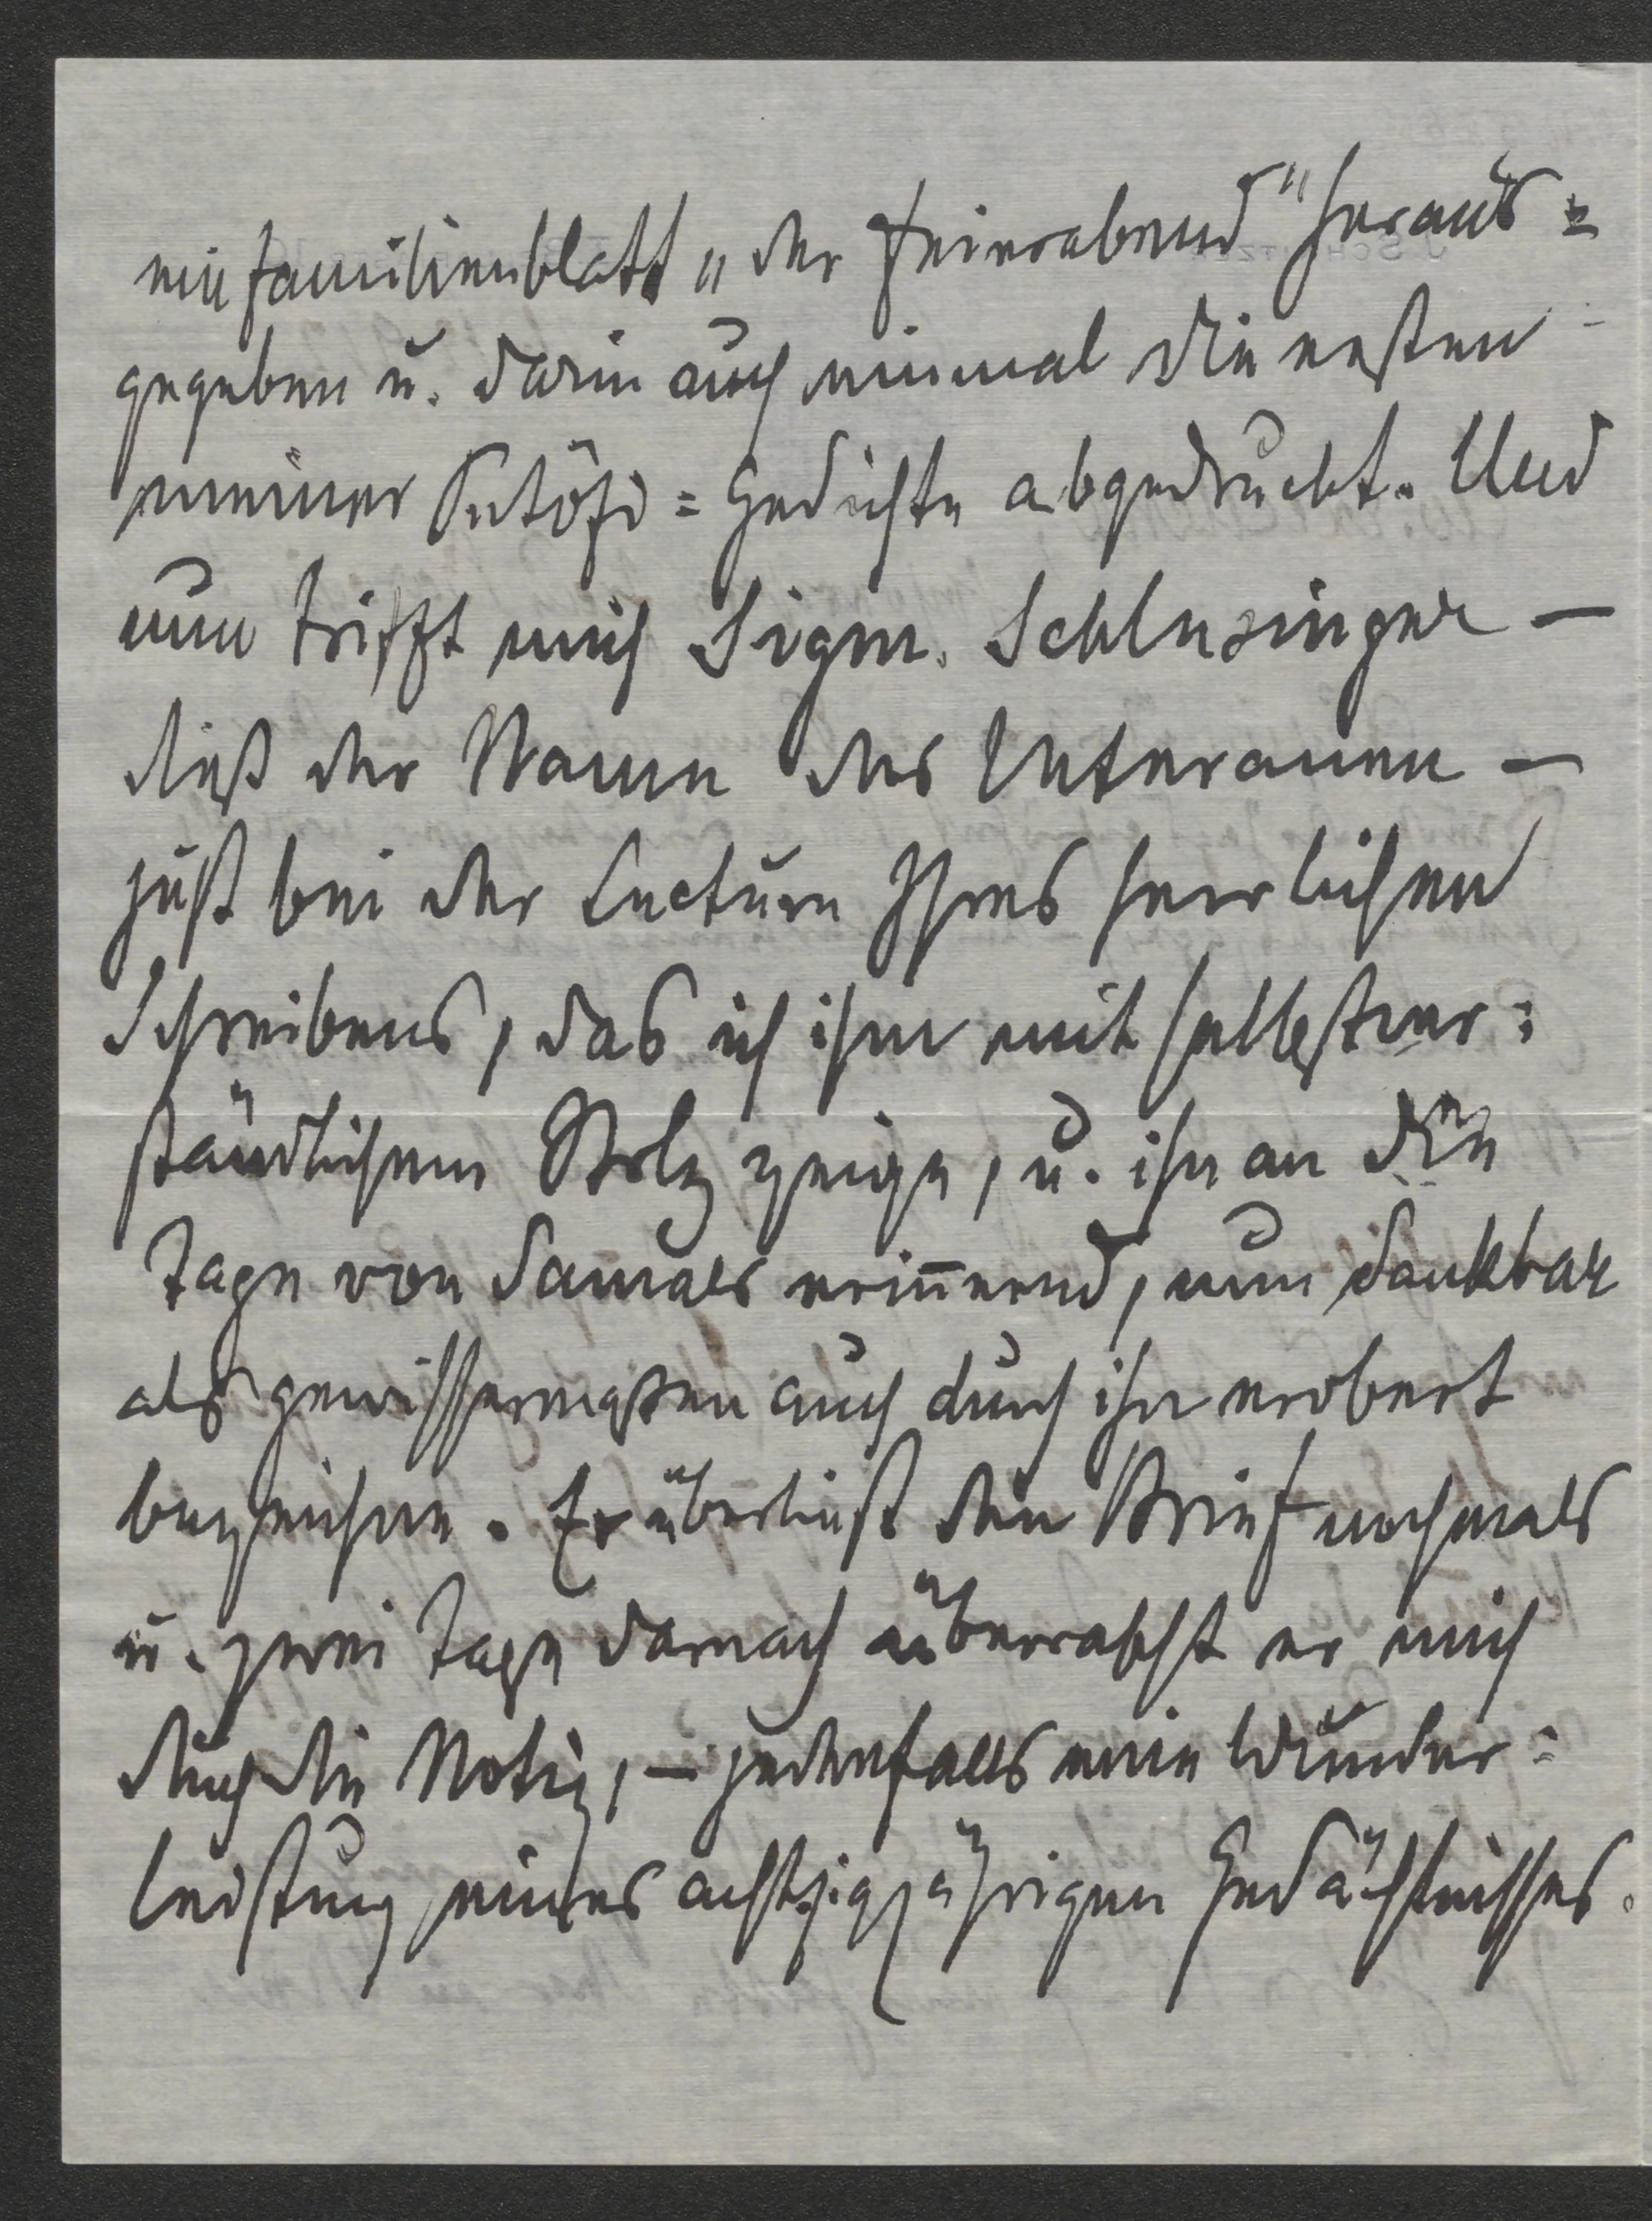 ein Familienblatt „der Feierabend“ heraus=
gegeben u. darin auch einmal die ersten
meiner Petöfi=Gedichte abgedruckt. Und
nun trifft mich Sigm. Schlesinger –
dieß der Name des Veteranen –
just bei der Lecture Ihres herrlichen
Schreibens, das ich ihm mit selbstver=
ständlichem Stolz zeige, u. ihn an die
Tage von damals erinnernd, nun dankbar
als gewissermaßen auch durch ihn erobert
bezeichne. Er überliest den Brief nochmals
u. zwei Tage darnach überrascht er mich
durch die Notiz, – jedenfalls eine Wunder=
leistung eines achtzigjährigen Gedächtnisses.